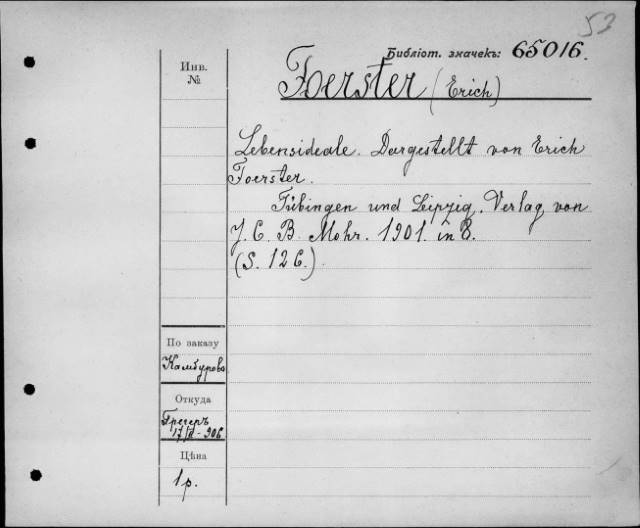 53
Библіот. значекъ: 65016.
Инв.
№
Foerster (Erich)
Lebensideale. Dargestellt von Erich
Foerster.
Tübingen und Leipzig. Verlag von
J. C. B. Mohr. 1901. in 8.
(S. 126.)
По заказу
Камбурова
Откуда
Грегеръ
17/II - 906
Цѣна
1 р.